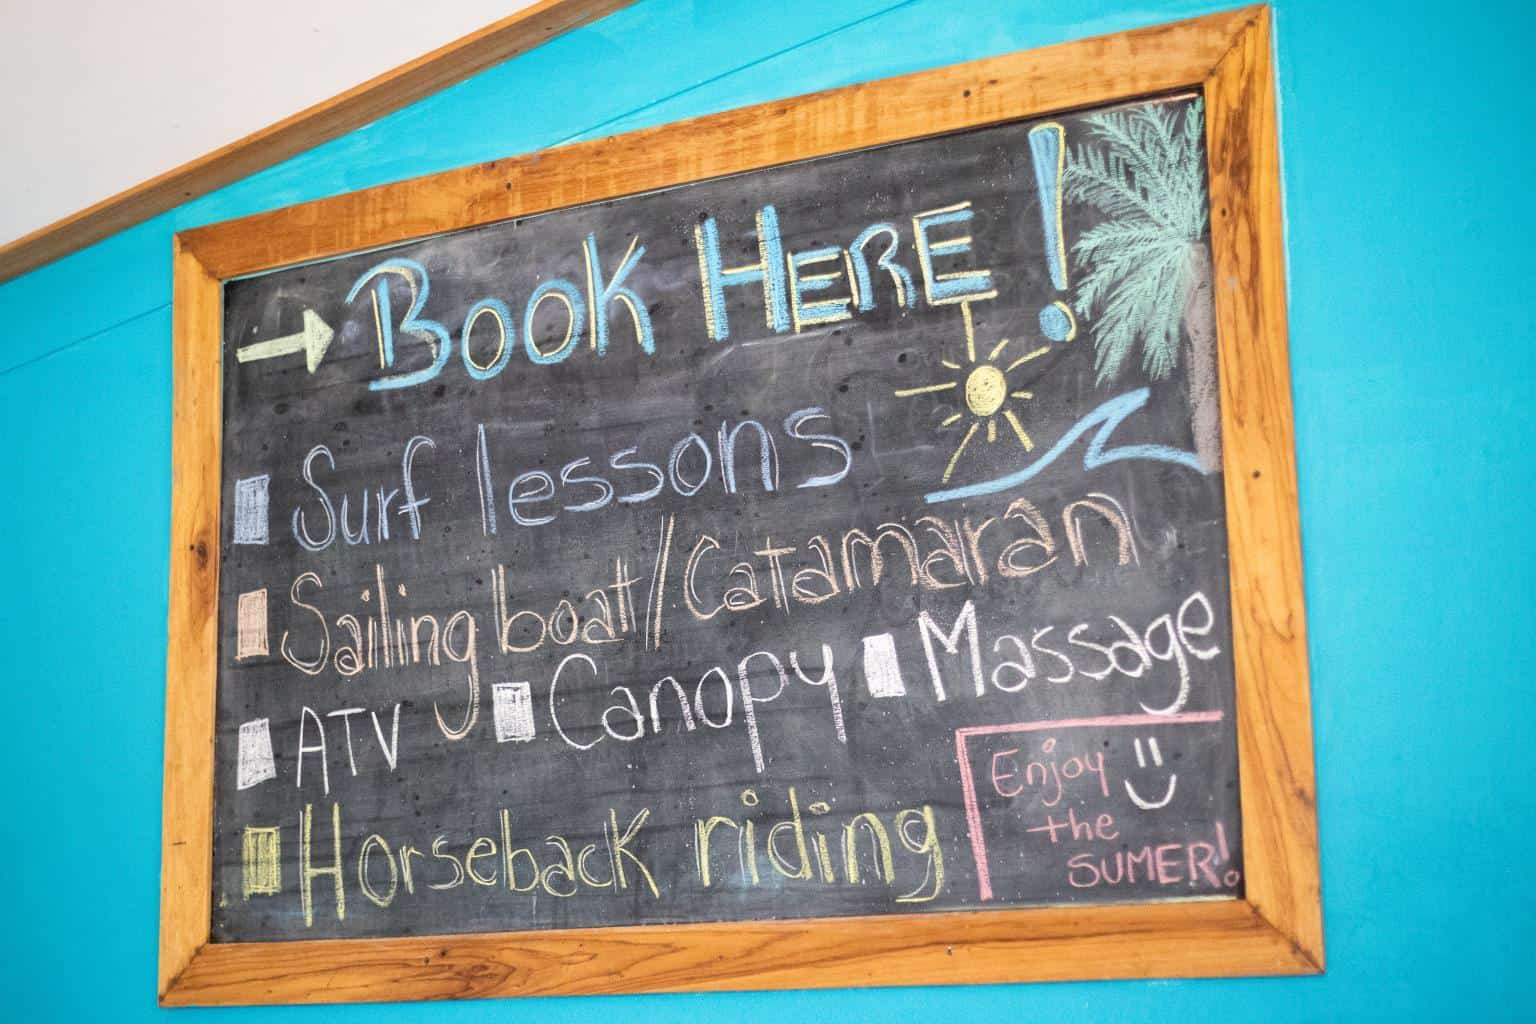 Book HERE!
Surf lessons
Sailing boat/Catamaran
ATV Canopy Massage
Horseback riding
Enjoy
the
SUMER!